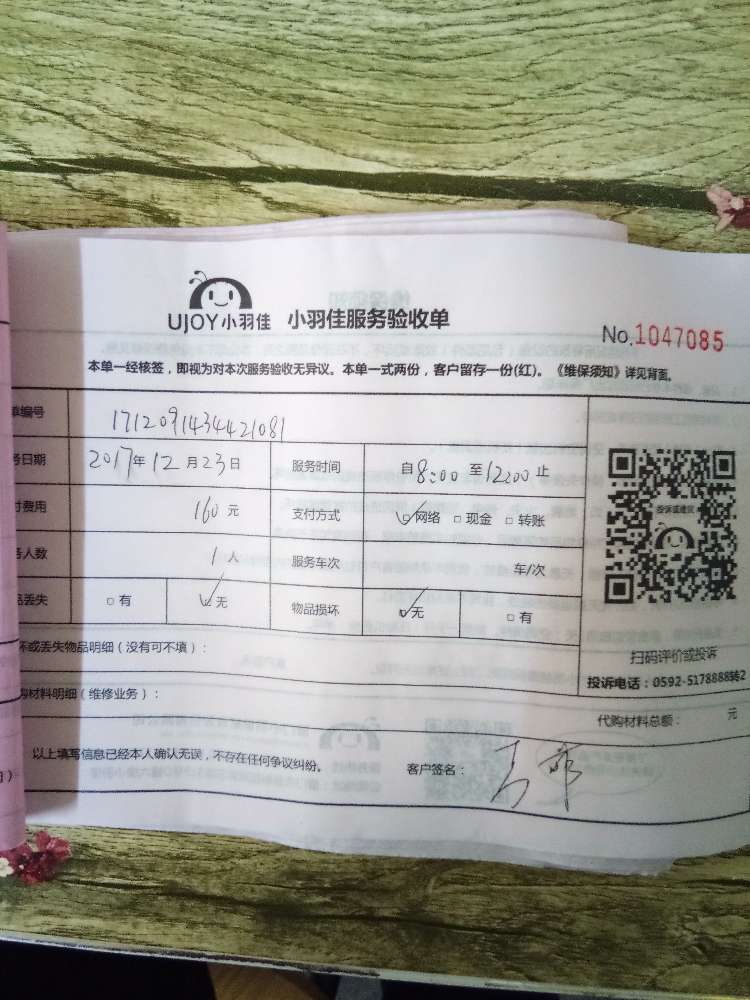 UJOY小羽佳 小羽佳服务验收单
No.1047085
本单一经核签，即视为对本次服务验收无异议。本单一式两份，客户留存一份(红)。《维保须知》详见背面。
单编号 1712091434421081
务日期 2017年12月23日 服务时间 自8:00至12:00止
付费用 160元 支付方式 ☑网络 □现金 □转账
务人数 1人 服务车次 车/次
品丢失 □有 ☑无 物品损坏 ☑无 □有
投诉或建议
扫码评价或投诉
投诉电话：0592-5178888转2
坏或丢失物品明细（没有可不填）：
购材料明细（维修业务）：
代购材料总额： 元
以上填写信息已经本人确认无误，不存在任何争议纠纷。 客户签名：